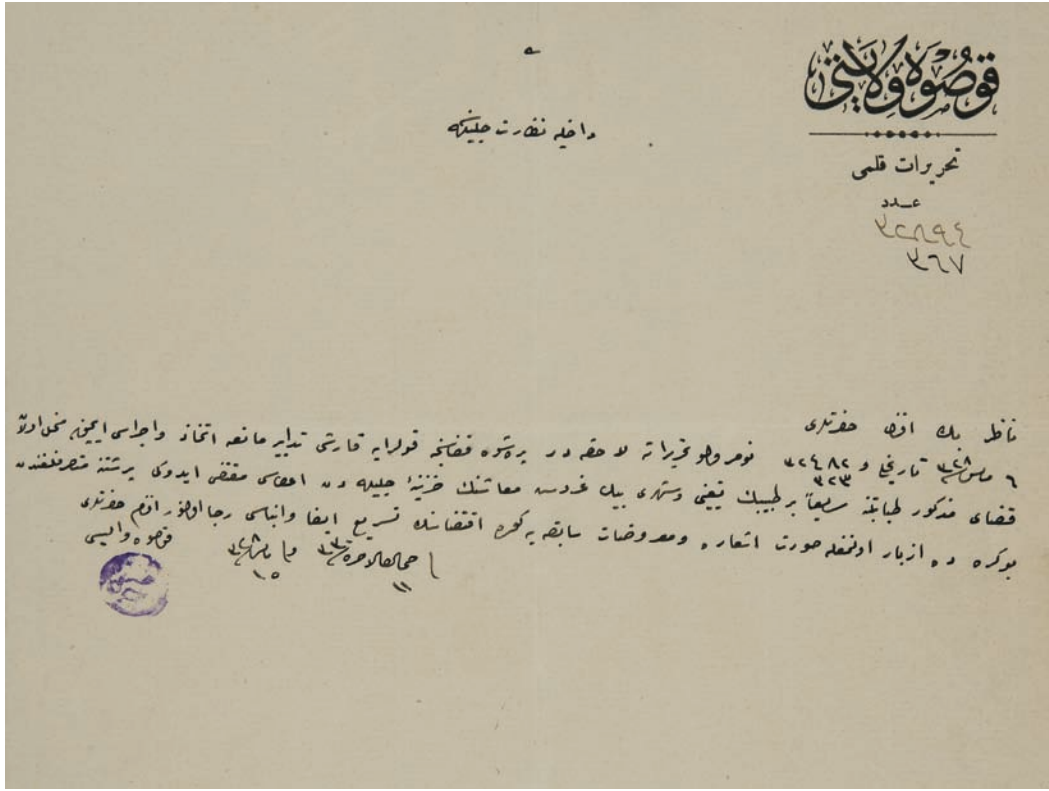 قوصوه ولايتى
تحريرات قلمى
عدد
٣٢٨٩٤
٣٦٧
داخليه نظارت جليله‌سنه
ناظر بك افندى حضرتلرى
٦ مايس ٣٢٨ تاريخ و ٣٢٤٨٢ ٣٢٣ نومرولو تحريراته لاحقه در پره‌شوه قضاسنجه قولرايه قارشى تدابير مانعه اتخاذ واجراسى ايچون منحل اولان
قضاى مذكور طبابتنه سريعاً بر طبيبك تعيينى وشهرى بيك غروش معاشنك خزينهٔ جليله دن اعطاسى مقتضى ايدوكى پرشتنه متصرفلغندن
بوكره ده ازبار اولنمغله صورت اشعاره ومعروضات سابقه‌يه كوره اقتضاسنك تسريع ايفا وانباسى رجا اولنور افندم حضرتلرى
فى ١١ جمادى الآخره ٣٣٠ و فى ١٥ مايس ٣٢٨
قوصوه واليسى